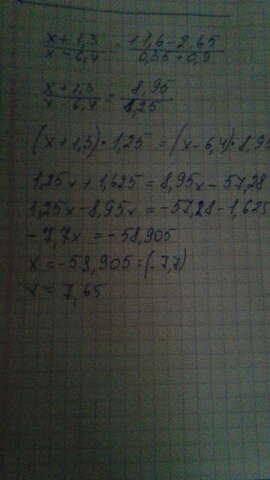 (x+1,3)/(x-6,4) = (11,6-2,65)/(0,35+0,9)
(x+1,3)/(x-6,4) = 8,95/1,25
(x+1,3)·1,25=(x-6,4)·8,95
1,25x+1,625=8,95x-57,28
1,25x-8,95x=-57,28-1,625
-7,7x=-58,905
x=-58,905:(-7,7)
x=7,65